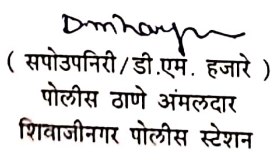 ( सपोउपनिरी/डी.एम. हजारे )
पोलीस ठाणे अंमलदार
शिवाजीनगर पोलीस स्टेशन